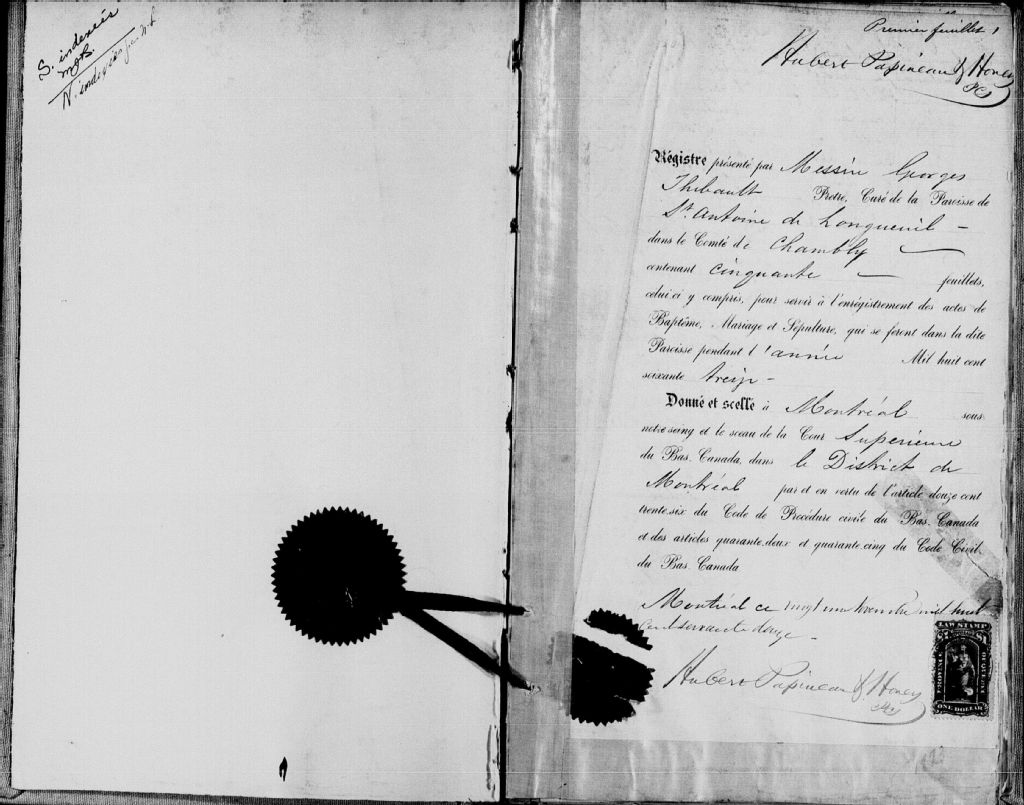 S. indexés
M.B.
N. indexés par M.L
Premier feuillet 1
Hubert Papineau & Honey
PCS
Régistre présenté par Messire Georges
Thibault Prêtre, Curé de la Paroisse de
St. Antoine de Longueuil –
dans le Comté de Chambly –
contenant cinquante – feuillets,
celui-ci y compris, pour servir à l'enrégistrement des actes de
Baptême, Mariage et Sépulture, qui se feront dans la dite
Paroisse pendant l'année Mil huit cent
soixante treize –
Donné et scellé à Montréal sous
notre seing et le sceau de la Cour Supérieure
du Bas-Canada, dans le District de
Montréal par et en vertu de l'article douze cent
trente-six du Code de Procédure civile du Bas-Canada
et des articles quarante-deux et quarante-cinq du Code Civil
du Bas-Canada
Montréal ce vingt une Novembre mil huit
Cent soixante douze –
Hubert Papineau & Honey
LAW STAMP
$1 $1
PROVINCE OF QUEBEC
ONE DOLLAR